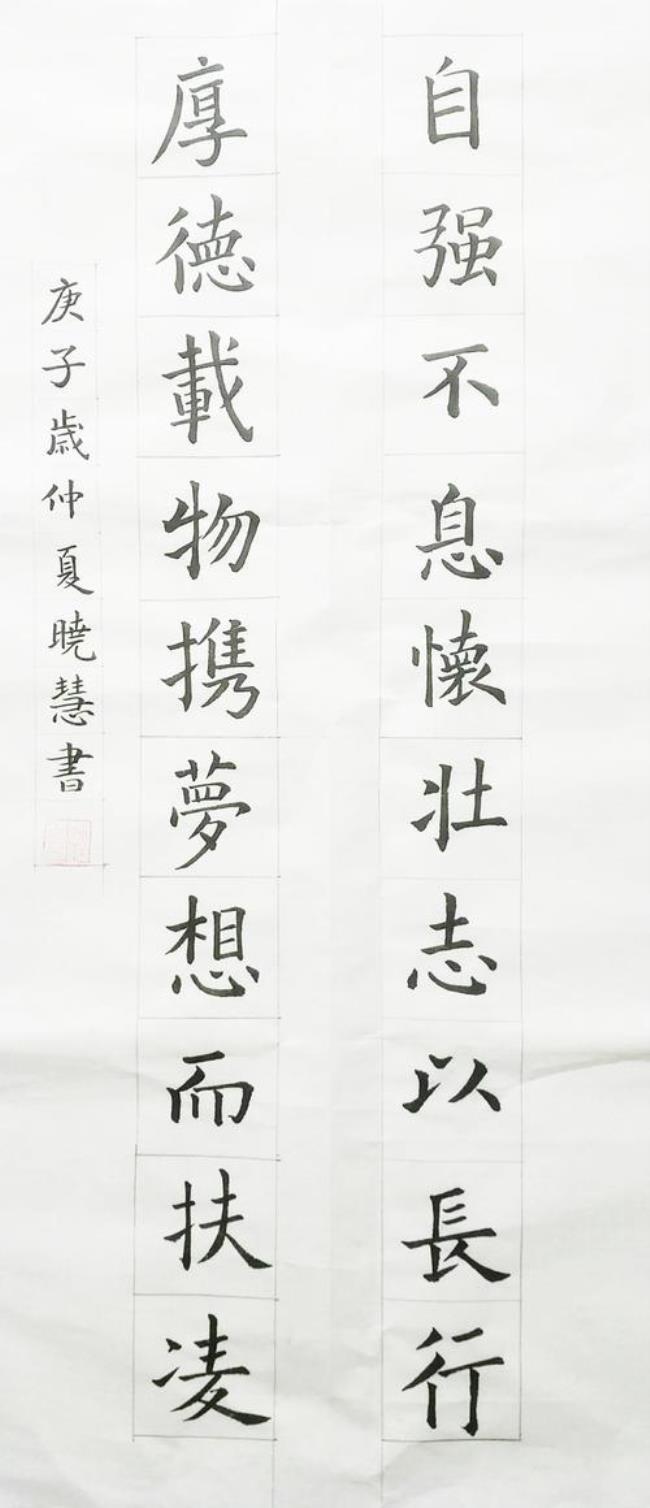 自强不息懷壮志以長行
厚德載物携夢想而扶凌
庚子歳仲夏曉慧書